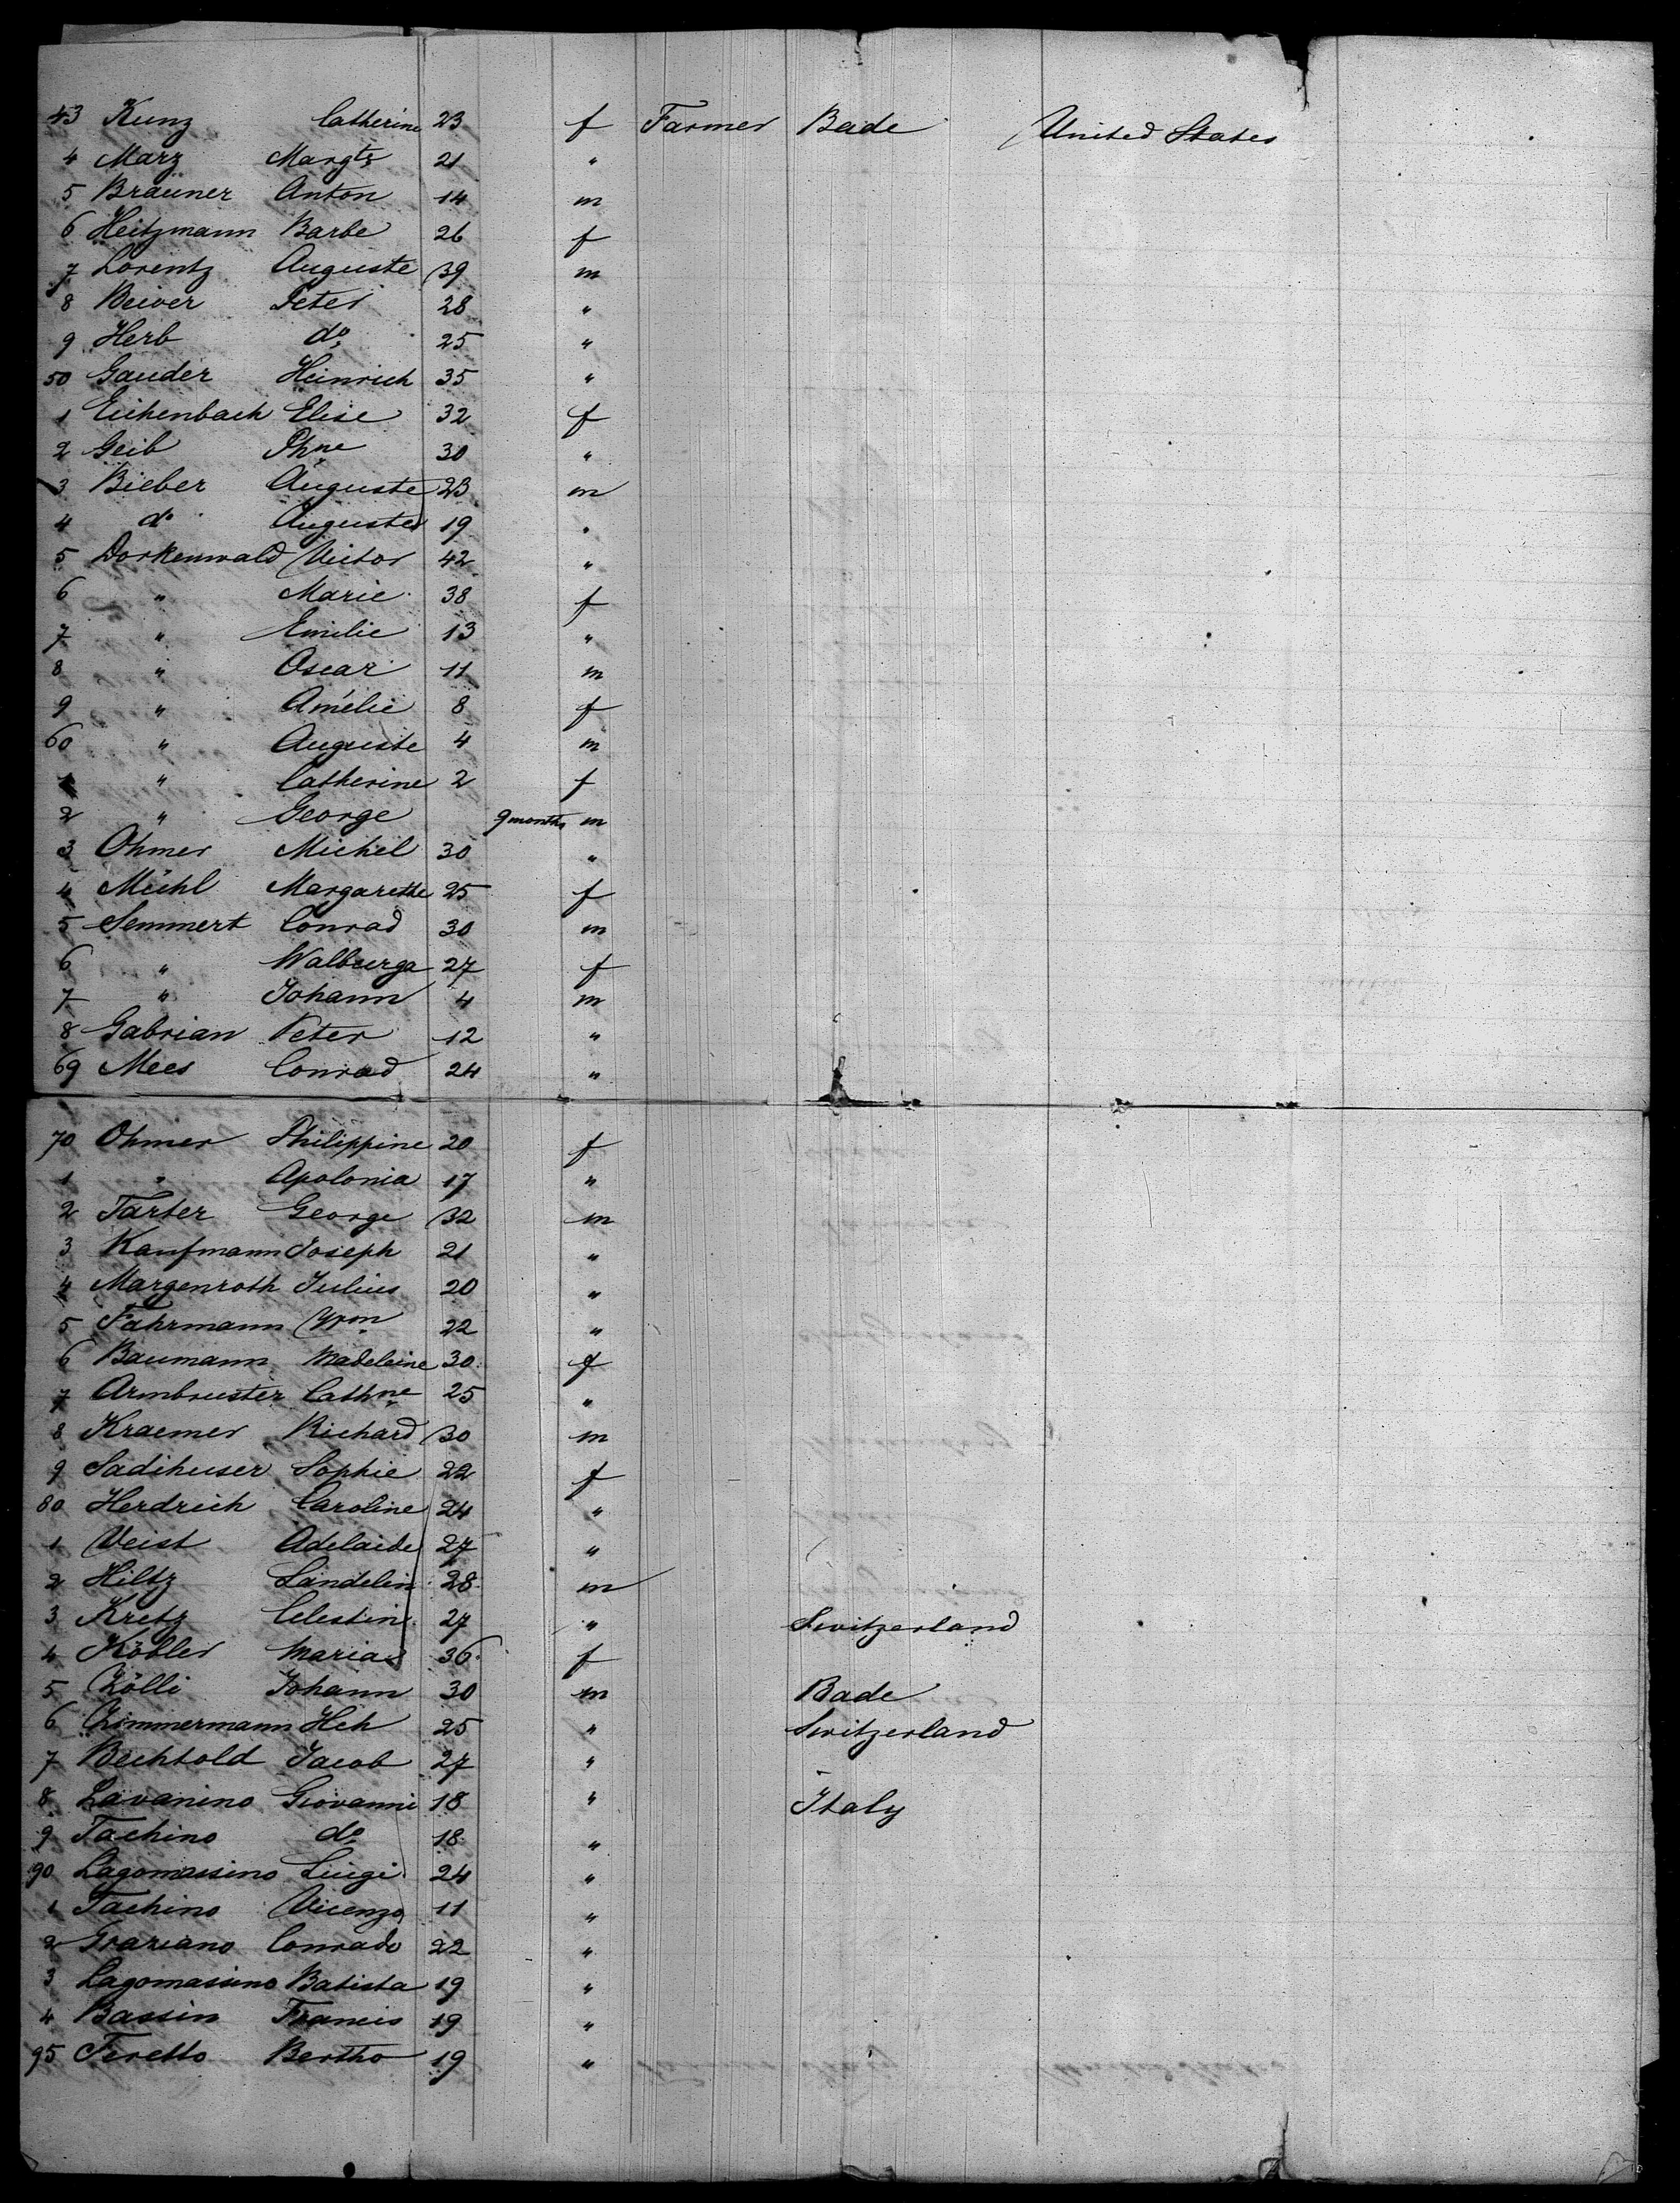 43 Kunz Catherine 23 f Farmer Bade United States
4 Marz Margte 21 "
5 Brauner Anton 14 m
6 Heitzmann Barbe 26 f
7 Lorentz Auguste 39 m
8 Beiver Peter 28 "
9 Herb do 25 "
50 Gauder Heinrich 35 "
1 Eichenbach Elise 32 f
2 Geib Phne 30 "
3 Bieber Auguste 23 m
4 do Auguste 19 "
5 Dorkenwald Victor 42 "
6 " Marie 38 f
7 " Emilie 13 "
8 " Oscar 11 m
9 " Amélie 8 f
60 " Auguste 4 m
1 " Catherine 2 f
2 " George 9 months m
3 Ohmer Michel 30 "
4 Mühl Margarethe 25 f
5 Semmert Conrad 30 m
6 " Walburga 27 f
7 " Johann 4 m
8 Gabrian Peter 12 "
69 Mees Conrad 24 "
70 Ohmer Philippine 20 f
1 " Apolonia 17 "
2 Tarter George 32 m
3 Kaufmann Joseph 21 "
4 Margenroth Julius 20 "
5 Fahrmann Wm 22 "
6 Baumann Madeleine 30 f
7 Armbruster Cathne 25 "
8 Kraemer Richard 30 m
9 Sadihuser Sophie 22 f
80 Herdrich Caroline 24 "
1 Veist Adelaide 27 "
2 Hiltz Landelin 28 m
3 Kretz Celestin 27 " Switzerland
4 Köbler Maria 36 f
5 Zölli Johann 30 m Bade
6 Zimmermann Hch 25 " Switzerland
7 Bechtold Jacob 27 "
8 Lavanino Giovanni 18 " Italy
9 Tachino do 18 "
90 Lagomassino Luigi 24 "
1 Tachino Vicenzo 11 "
2 Graziano Conrado 22 "
3 Lagomassino Batista 19 "
4 Bassin Francis 19 "
95 Feretto Bertho 19 "